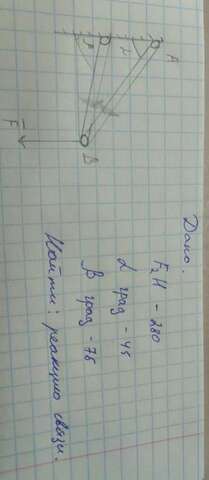 A
α
β
B
F
Дано:
F₂ H - 280
α град - 45
β град - 75
Найти: реакцию связи.